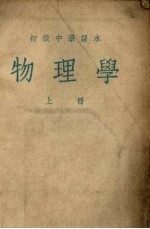 初級中學課本
物理學
上冊